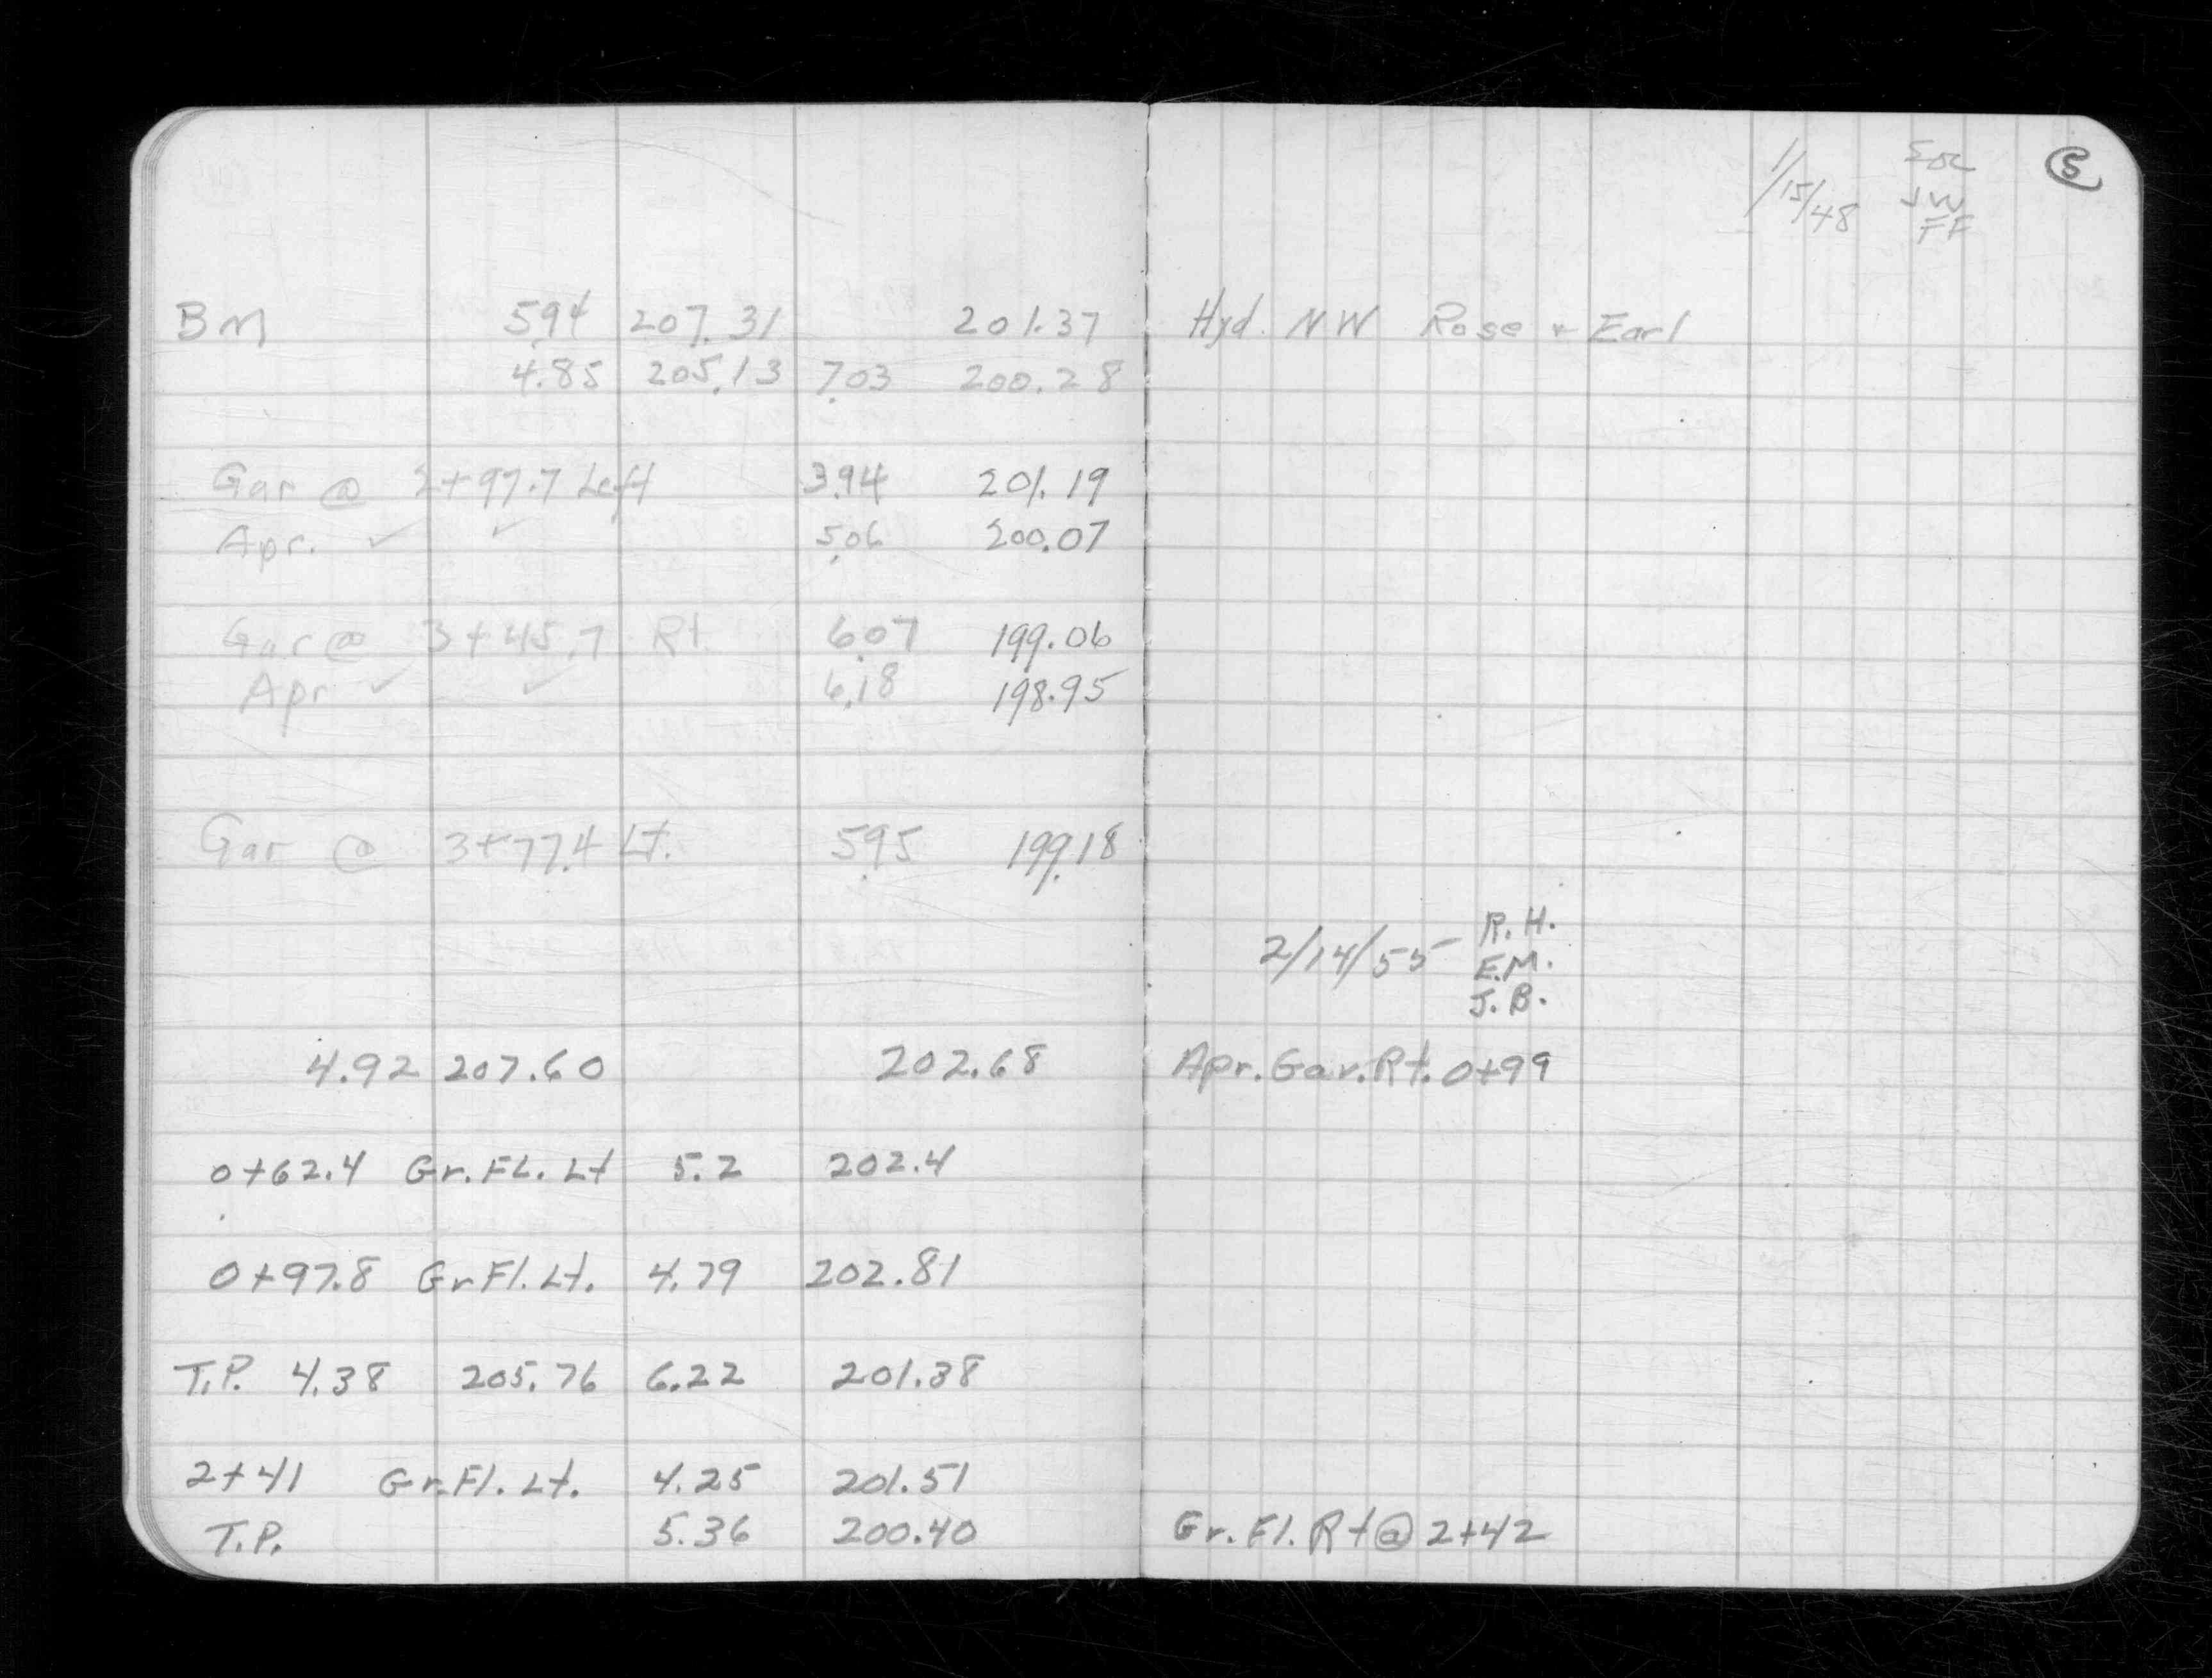 1/15/48 JW FF 5
BM 5.94 207.31 201.37 Hyd. NW Rose + Earl
4.85 205.13 7.03 200.28
Gar @ 2+97.7 Left 3.94 201.19
Apr. ✓ ✓ 5.06 200.07
Gar @ 3+45.7 Rt. 6.07 199.06
Apr ✓ ✓ 6.18 198.95
Gar @ 3+77.4 Lt. 5.95 199.18
2/14/55 R.H.
E.M.
J.B.
4.92 207.60 202.68 Apr. Gar. Rt. 0+99
0+62.4 Gr. FL. Lt 5.2 202.4
0+97.8 Gr Fl. Lt. 4.79 202.81
T.P. 4.38 205.76 6.22 201.38
2+41 Gr. Fl. Lt. 4.25 201.51
T.P. 5.36 200.40 Gr. Fl. Rt @ 2+42